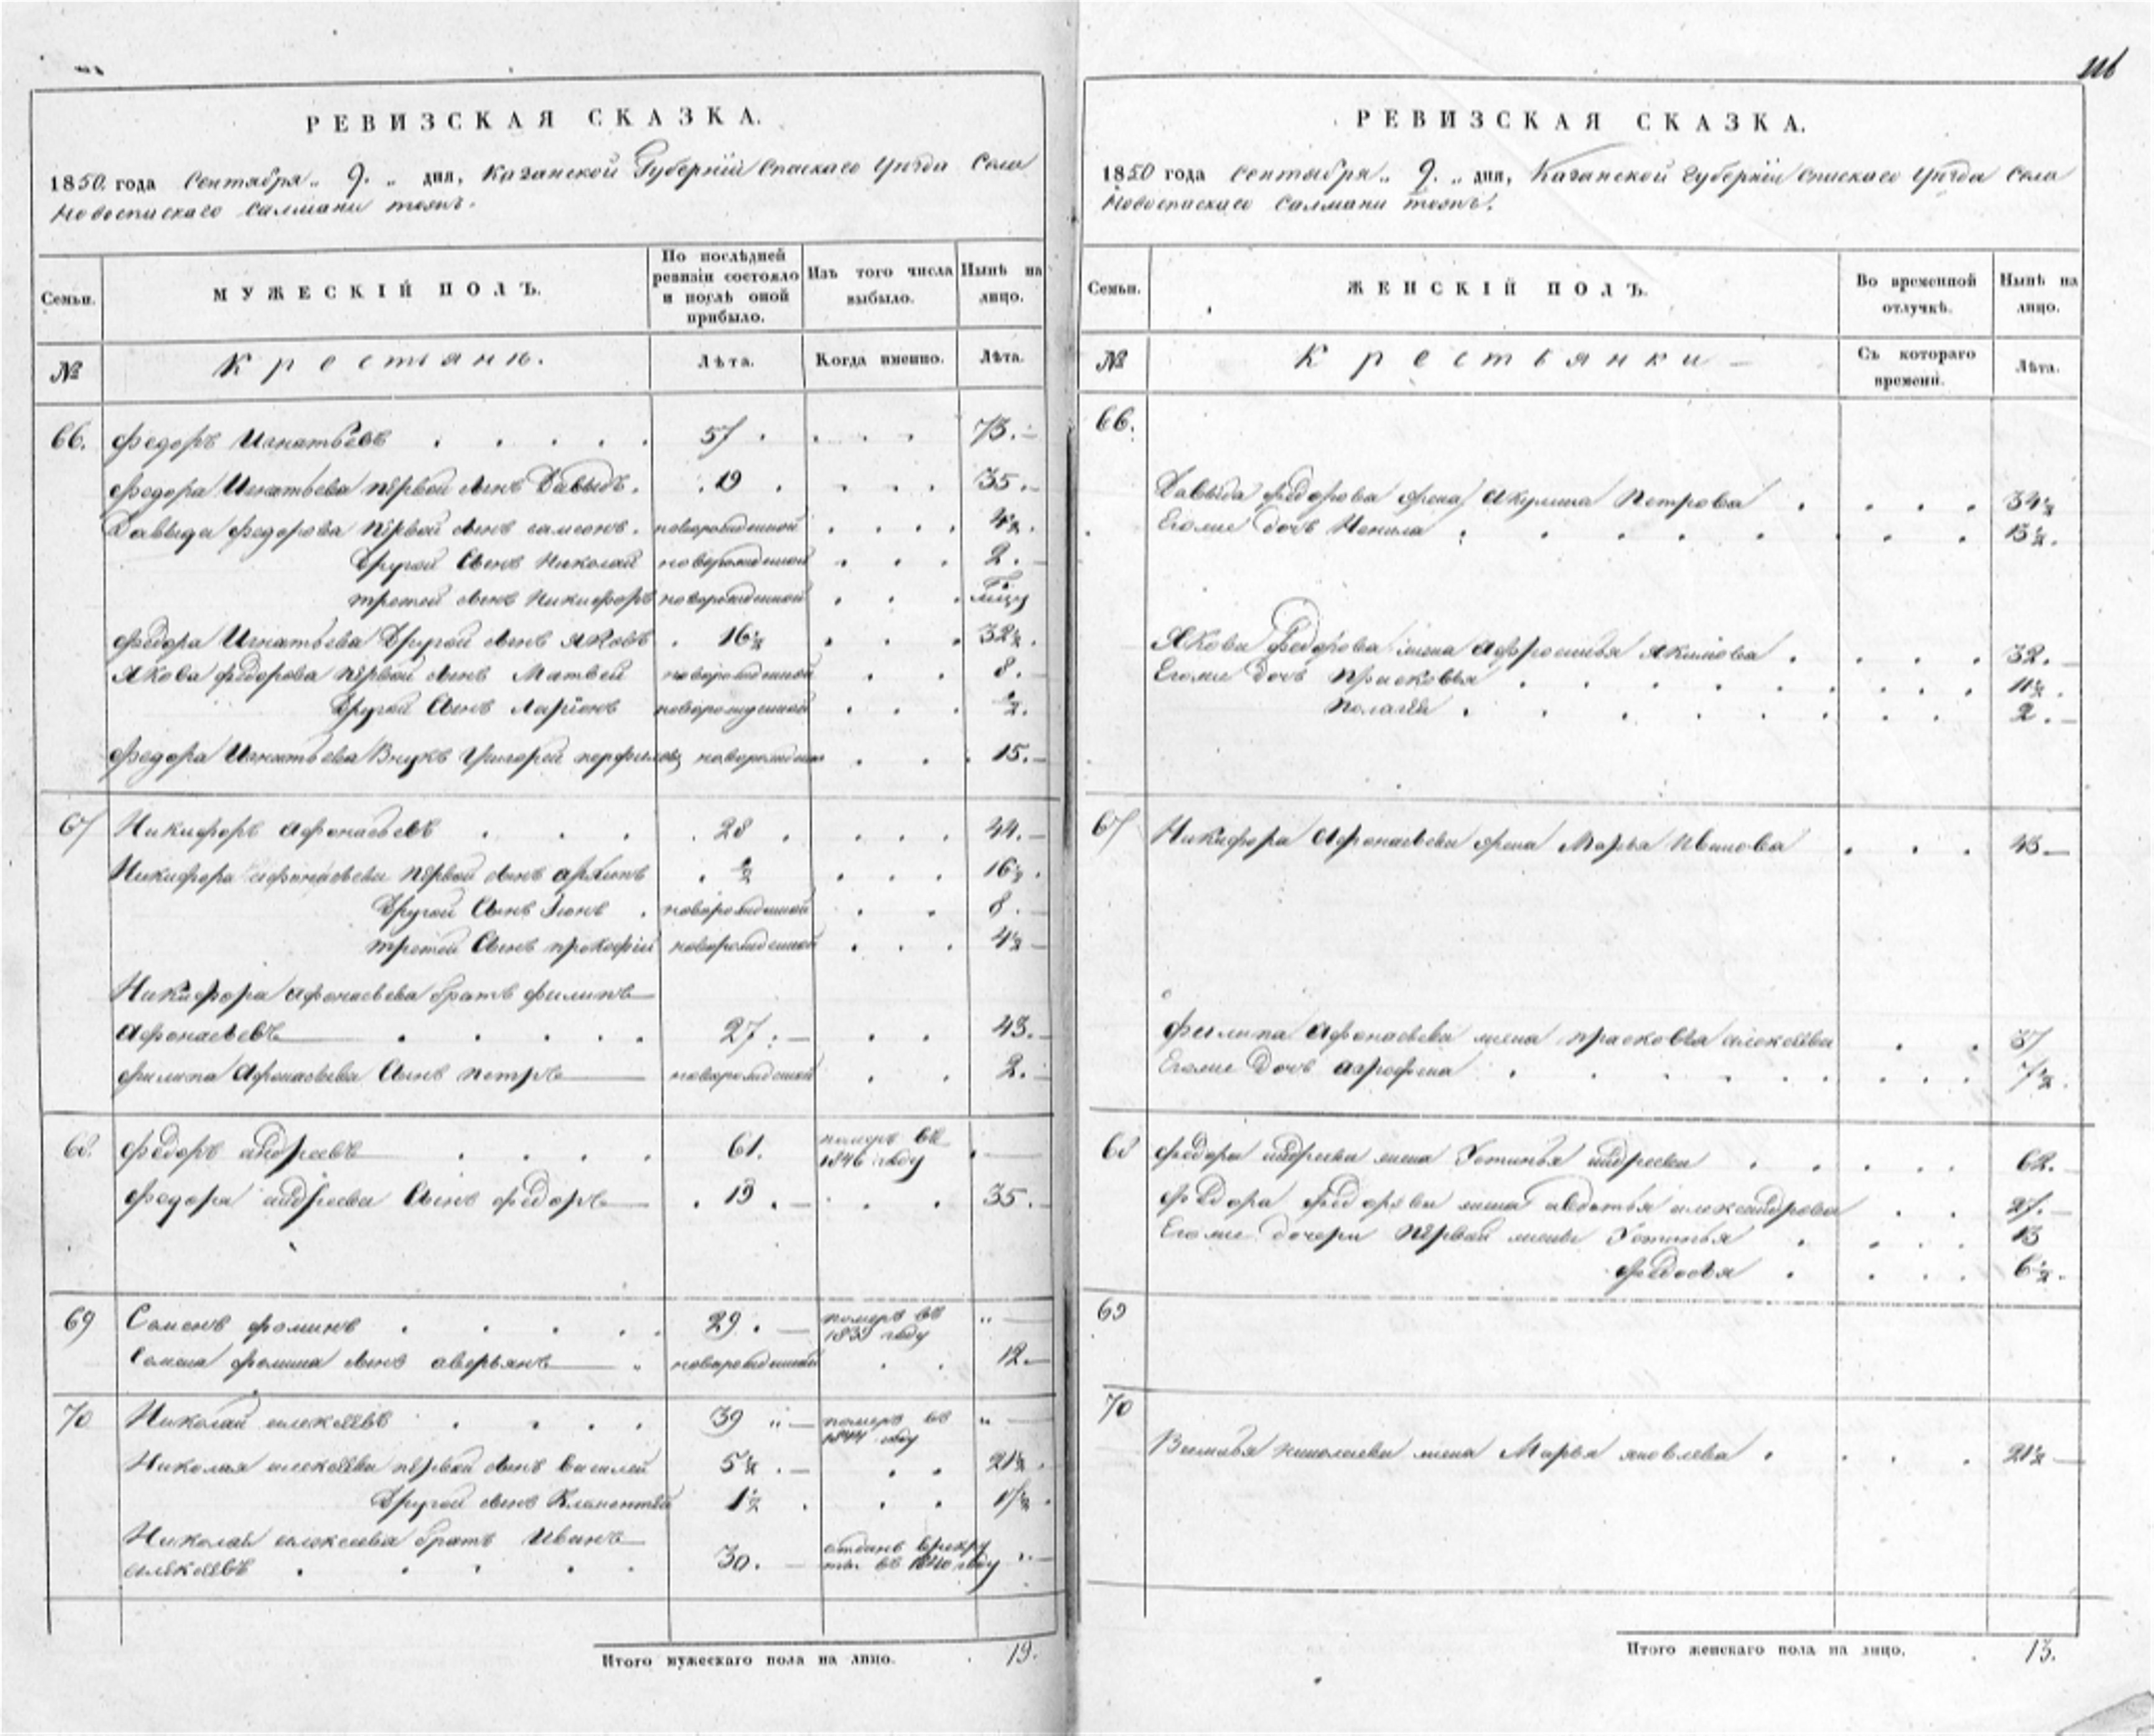 116
РЕВИЗСКАЯ СКАЗКА.
1850 года Сентября „ 9. „ дня, Казанской Губерніи Спаскаго Уѣзда Села
Новоспаскаго Салманы тожъ.
Семьи.
МУЖЕСКІЙ ПОЛЪ.
По послѣдней ревизіи состояло и послѣ оной прибыло.
Изъ того числа выбыло.
Нынѣ на лицо.
№ Крестьяне. Лѣта. Когда именно. Лѣта.
66. Федоръ Игнатьевъ 57 73.
Федора Игнатьева первой сынъ Давыдъ. 19 35.
Давыда Федорова первой сынъ Самсонъ. новорожденной 4½.
Другой Сынъ Николай новорожденной 2.
третей сынъ Никифоръ новорожденной
Федора Игнатьева Другой сынъ Яковъ 16½ 32½.
Якова Федорова первой сынъ Матвей новорожденной 8.
Другой Сынъ Ларіонъ новорожденной ½.
Федора Игнатьева Внукъ Григорей перфиловъ новорожден 15.
67 Никифоръ Афонасьевъ 28 44.
Никифора Афонасьева первой сынъ Архипъ ½ 16½.
Другой Сынъ Іонъ новорожденной 8.
третей Сынъ прокофій новорожденной 4½
Никифора Афонасьева братъ филипъ
Афонасьевъ 27. 43.
филипа Афонасьева Сынъ петръ новорожденной 2.
68. Федоръ андреевъ 61. померъ въ
1846 году
Федора андреева Сынъ федоръ 19. 35.
69 Семенъ фоминъ 29. померъ въ
1839 году
Семена фомина сынъ аверьянъ новорожденной 12.
70 Николай алексѣевъ 39 померъ въ
1844 году
Николая алексѣева первой сынъ Василей 5½. 21½.
Другой сынъ Клементей 1½. 17½.
Николая алексеева братъ Иванъ
алексѣевъ 30. отданъ врекру
ты въ 1840 году
Итого мужескаго пола на лицо. 19.
РЕВИЗСКАЯ СКАЗКА.
1850 года Сентября „ 9. „ дня, Казанской Губерніи Спаскаго Уѣзда Села
Новоспаскаго Салманы тожъ.
Семьи.
ЖЕНСКІЙ ПОЛЪ.
Во временной отлучкѣ.
Нынѣ на лицо.
№ Крестьянки Съ котораго времени. Лѣта.
66.
Давыда Федорова жена Акулина Петрова 34½
Егоже дочь Ненила 15½.
Якова Федорова жена Афросинья Якимова 32.
Егоже Дочь Прасковья 11½.
Полагѣя 2.
67 Никифора Афонасьева жена Марья Иванова 43
филипа Афонасьева жена прасковья алексѣева 37
Егоже Дочь аграфена 7½.
68 Федора андреева жена Устинья андреева 62.
Федора Федорова жена авдотья александрова 27.
Егоже дочери первой жены Устинья 13
Федосья 6½.
69
70
Василья николаева жена Марья яковлева 21½
Итого женскаго пола на лицо. 13.